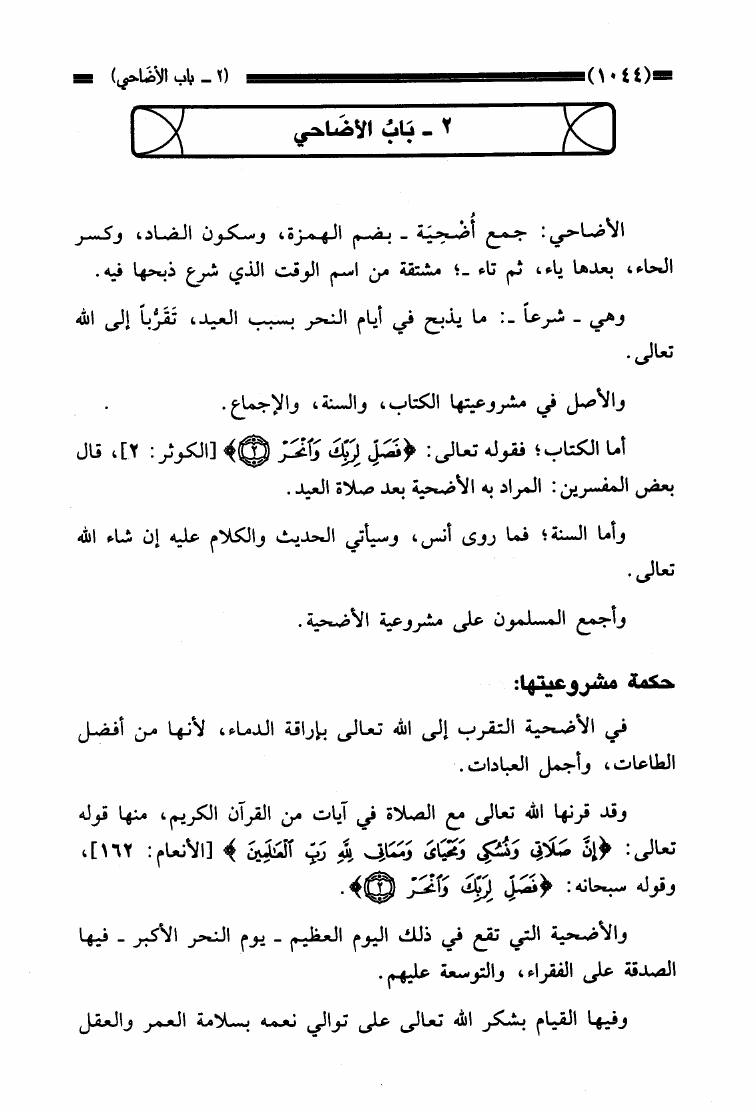 (١٠٤٤) (٢ ـ باب الأضَاحي)
٢ ـ بَابُ الأضَاحي
الأضاحي: جمع أُضْحِيَة ـ بضم الهمزة، وسكون الضاد، وكسر
الحاء، بعدها ياء، ثم تاء ـ؛ مشتقة من اسم الوقت الذي شرع ذبحها فيه.
وهي ـ شرعاً ـ: ما يذبح في أيام النحر بسبب العيد، تَقَرُّباً إلى الله
تعالى.
والأصل في مشروعيتها الكتاب، والسنة، والإجماع.
أما الكتاب؛ فقوله تعالى: ﴿فَصَلِّ لِرَبِّكَ وَٱنْحَرْ ۝٢﴾ [الكوثر: ٢]، قال
بعض المفسرين: المراد به الأضحية بعد صلاة العيد.
وأما السنة؛ فما روى أنس، وسيأتي الحديث والكلام عليه إن شاء الله
تعالى.
وأجمع المسلمون على مشروعية الأضحية.
حكمة مشروعيتها:
في الأضحية التقرب إلى الله تعالى بإراقة الدماء، لأنها من أفضل
الطاعات، وأجمل العبادات.
وقد قرنها الله تعالى مع الصلاة في آيات من القرآن الكريم، منها قوله
تعالى: ﴿إِنَّ صَلَاتِي وَنُسُكِي وَمَحْيَايَ وَمَمَاتِي لِلَّهِ رَبِّ ٱلْعَالَمِينَ﴾ [الأنعام: ١٦٢]،
وقوله سبحانه: ﴿فَصَلِّ لِرَبِّكَ وَٱنْحَرْ ۝٢﴾.
والأضحية التي تقع في ذلك اليوم العظيم ـ يوم النحر الأكبر ـ فيها
الصدقة على الفقراء، والتوسعة عليهم.
وفيها القيام بشكر الله تعالى على توالي نعمه بسلامة العمر والعقل